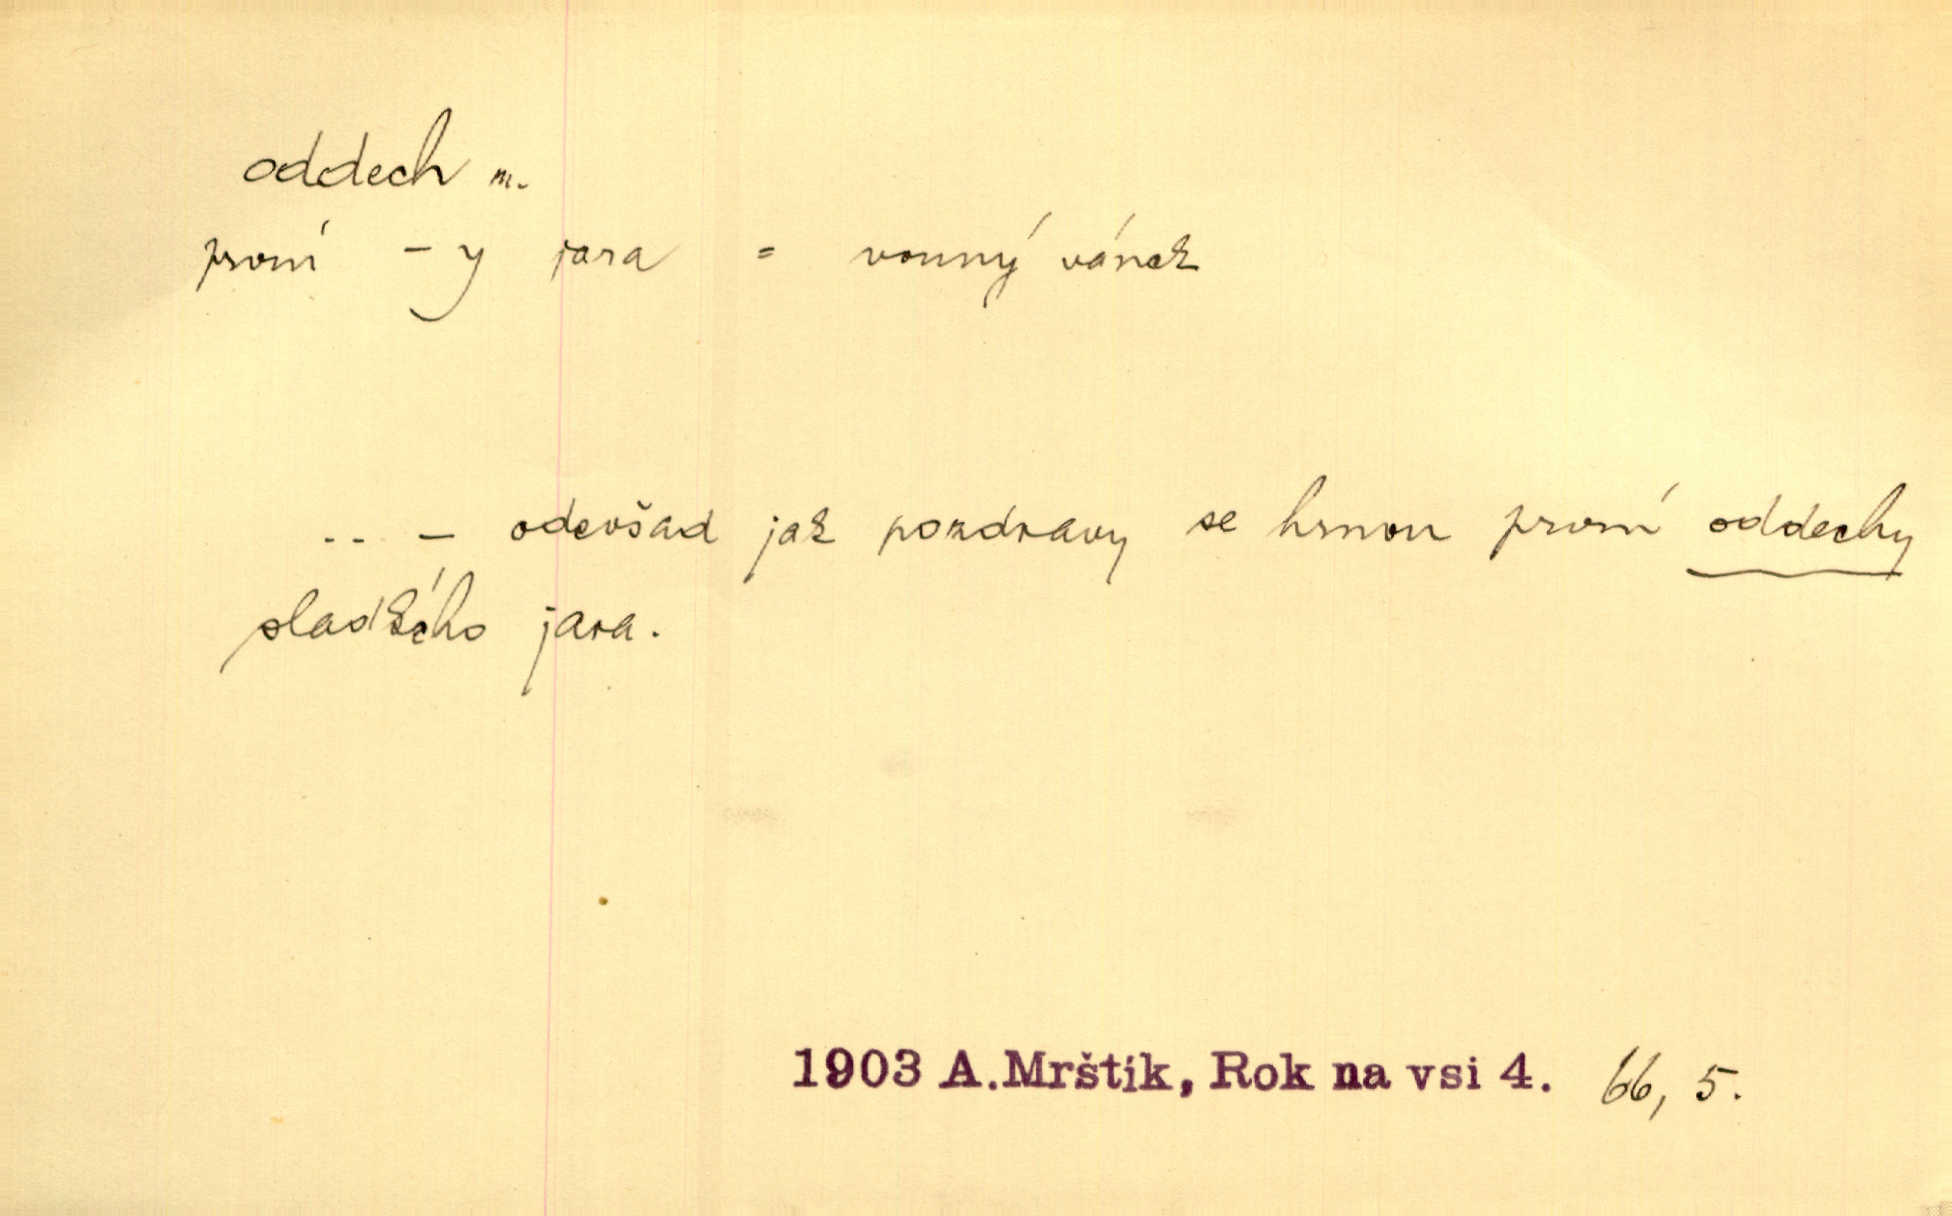 oddech m.
první - y jara = vonný vánek
.. — odevšad jak pozdravy se hrnou první oddechy
sladkého jara.
1903 A.Mrštík, Rok na vsi 4. 66, 5.